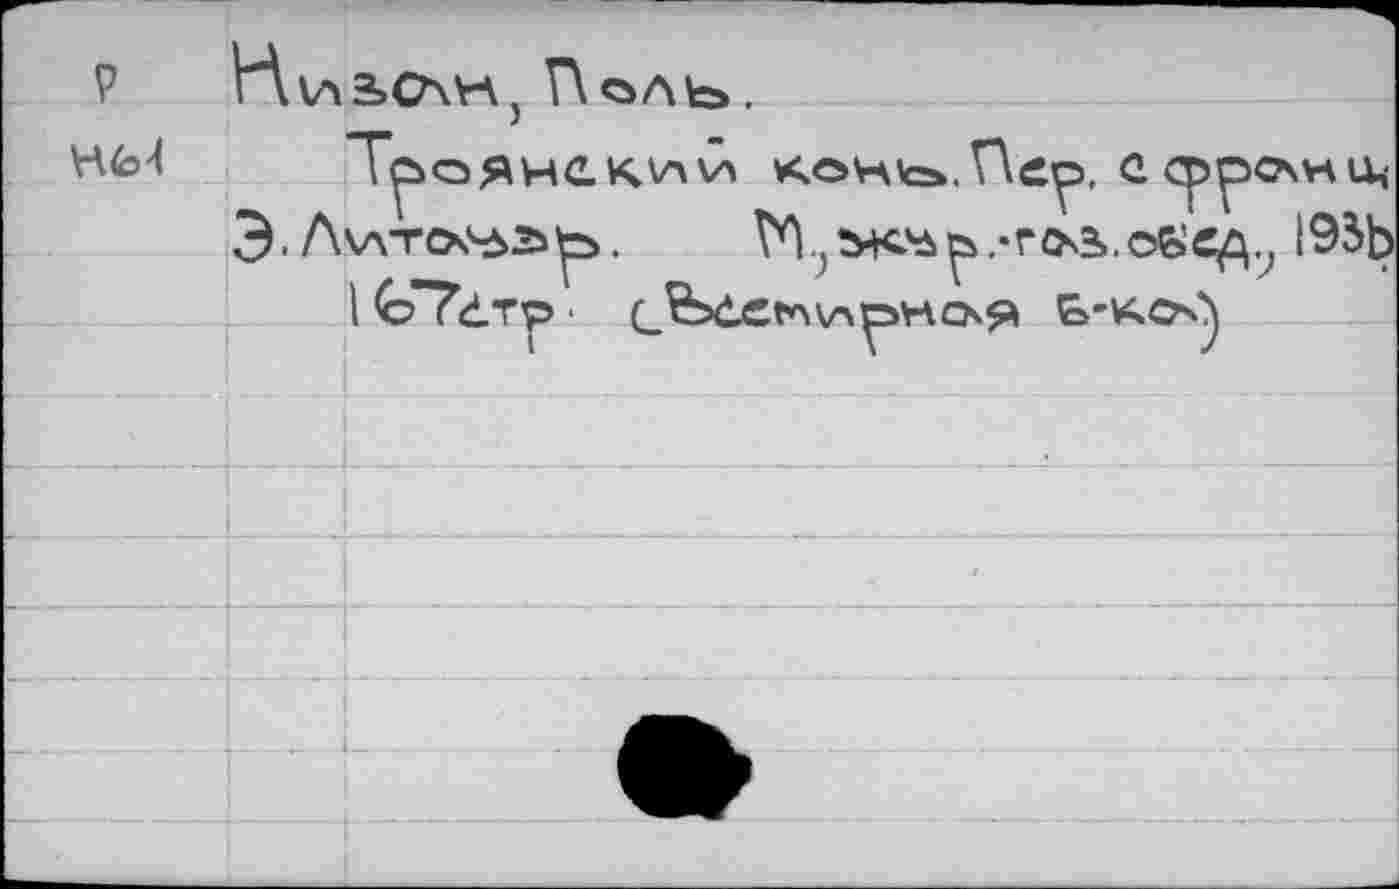 Р Низан, Поль.
Н61 Троянский конь. Пер. с франц.
Э. Литауэр. М., жур.-газ. объед.,
167 стр. (Всемирная б-ка)